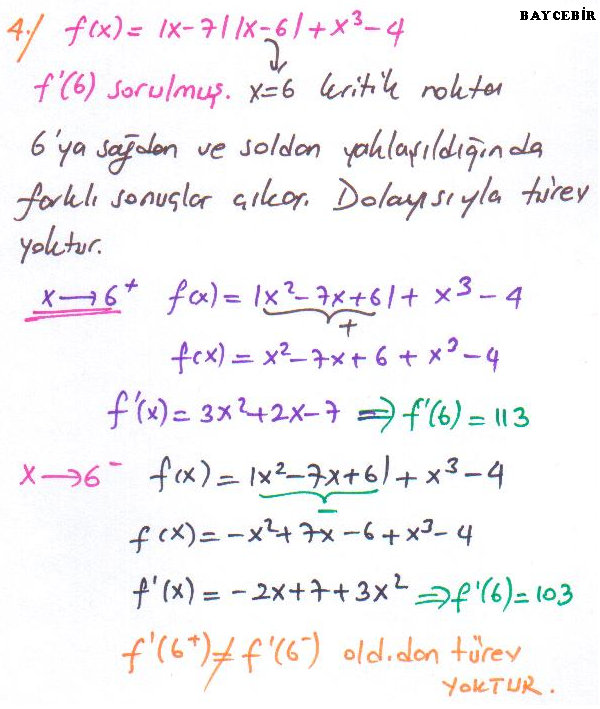 BAYCEBİR
4./ f(x) = |x-7||x-6| + x³-4
f'(6) sorulmuş. x=6 kritik nokta
6'ya sağdan ve soldan yaklaşıldığında
farklı sonuçlar çıkar. Dolayısıyla türev
yoktur.
x→6⁺ f(x) = |x²-7x+6| + x³-4
+
f(x) = x²-7x+6+x³-4
f'(x) = 3x²+2x-7 ⇒ f'(6) = 113
x→6⁻ f(x) = |x²-7x+6| + x³-4
-
f(x) = -x²+7x-6+x³-4
f'(x) = -2x+7+3x² ⇒ f'(6) = 103
f'(6⁺) ≠ f'(6⁻) old.dan türev
YOKTUR.